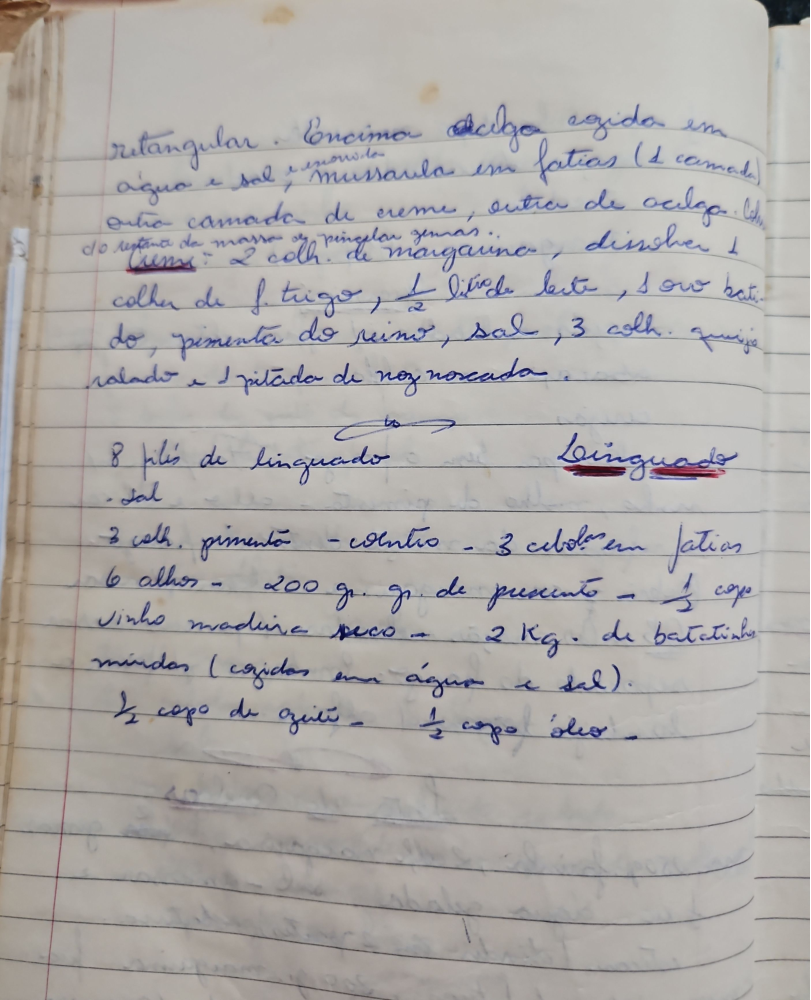 retangular. Encima acelga cozida em
água e sal, e escorrida mussarela em fatias (1 camada)
outra camada de creme, outra de acelga.
do restante da massa e pincelar gemas.
Creme: 2 colh. de margarina, dissolver 1
colher de f. trigo, 1/2 litro de leite, 1 ovo bati-
do, pimenta do reino, sal, 3 colh. queijo
ralado e 1 pitada de noz noscada.
8 filés de linguado Linguado
. sal
3 colh. pimenta - coentro - 3 cebolas em fatias
6 alhos - 200 gr. gr. de presunto - 1/2 copo
vinho madeira seco - 2 Kg. de batatinhas
miudas (cozidas em água e sal).
1/2 copo de azeite - 1/2 copo óleo -